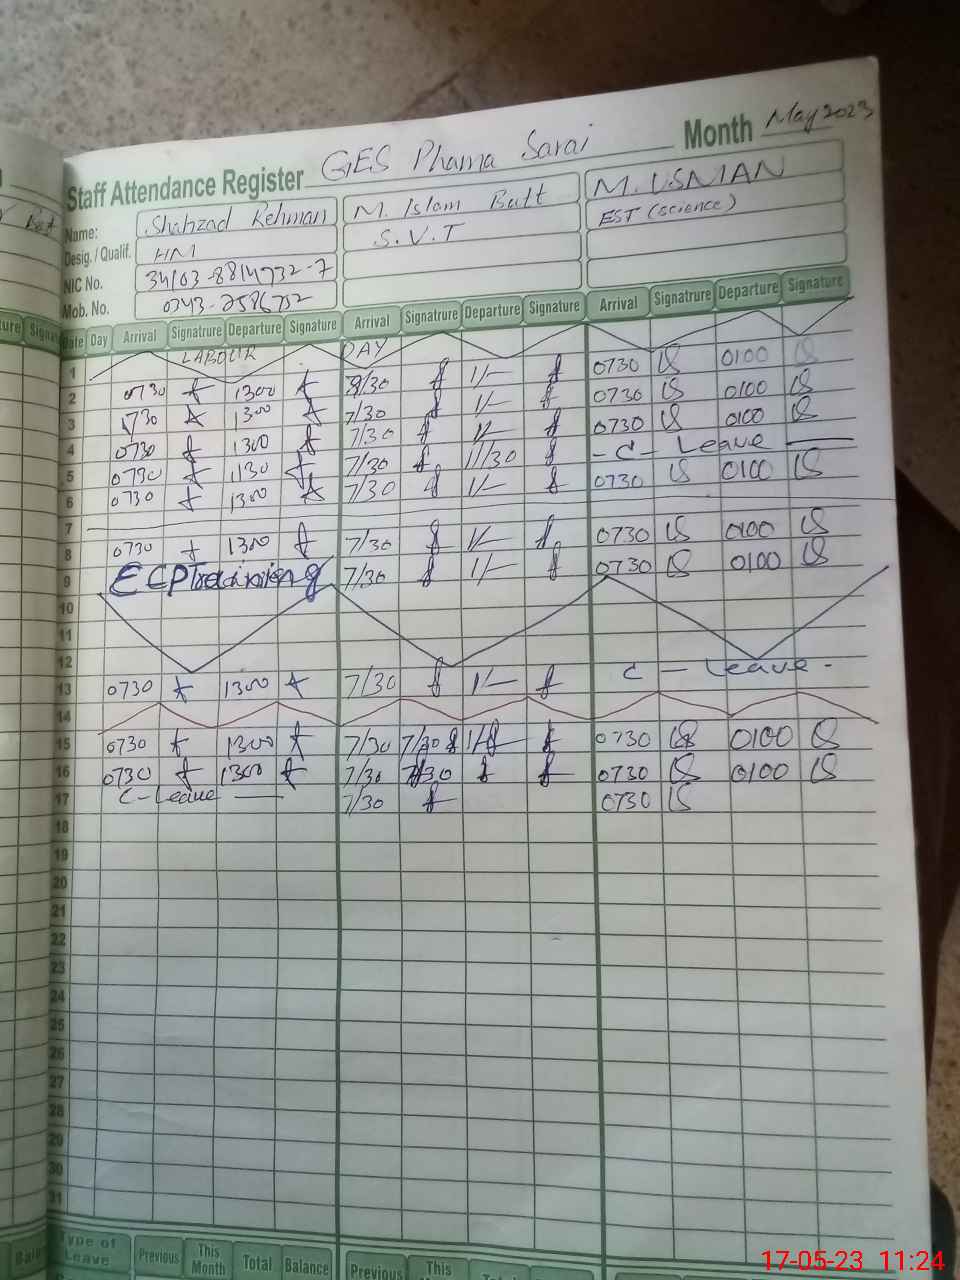 Staff Attendance Register GES Phama Sarai Month May 2023
Name: Shahzad Rehman M. Islam Butt M. USMAN
Desig. / Qualif. HM S.V.T EST (science)
NIC No.
Mob. No.
Date Day Arrival Signatrure Departure Signature Arrival Signatrure Departure Signature Arrival Signatrure Departure Signature
1 LABOUR DAY
2 0730 1300 8/30 1/- 0730 0100
3 0730 1300 7/30 1/- 0730 0100
4 0730 1300 7/30 1/- 0730 0100
5 0730 1130 7/30 11/30 - C - Leave
6 0730 1300 7/30 1/- 0730 0100
7
8 0730 1300 7/30 1/- 0730 0100
9 ECP Training 7/30 1/- 0730 0100
10
11
12
13 0730 1300 7/30 1/- C - Leave -
14
15 0730 1300 7/30 7/30 0730 0100
16 0730 1300 7/30 0730 0100
17 C-Leave 7/30 0730
18
19
20
21
22
23
24
25
26
27
28
29
30
31
Type of Leave Previous This Month Total Balance Previous This
17-05-23 11:24